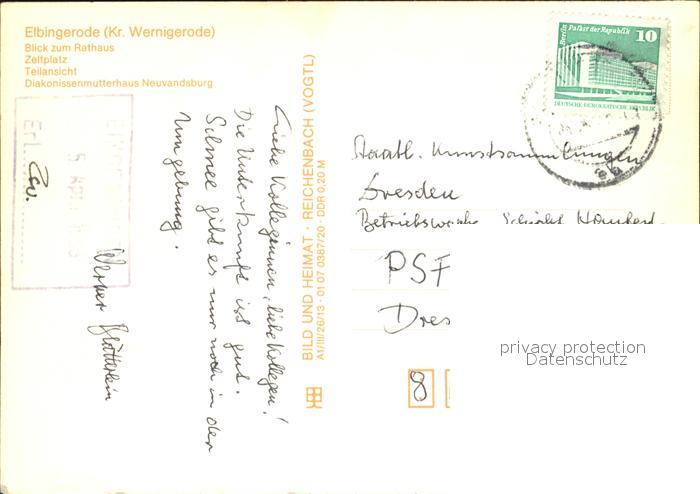 Elbingerode (Kr. Wernigerode)
Blick zum Rathaus
Zeltplatz
Teilansicht
Diakonissenmutterhaus Neuvandsburg
Liebe Kolleginnen, liebe Kollegen!
Die Unterkunft ist gut.
Schnee gibt es nur noch in der
Umgebung.
Werner
BILD UND HEIMAT · REICHENBACH (VOGTL)
A1/III/26/13 · 01 07 0387/20 · DDR 0,20 M
Berlin Palast der Republik
10
DEUTSCHE DEMOKRATISCHE REPUBLIK
Staatl. Kunstsammlungen
Dresden
PSF
Dres
8
privacy protection
Datenschutz